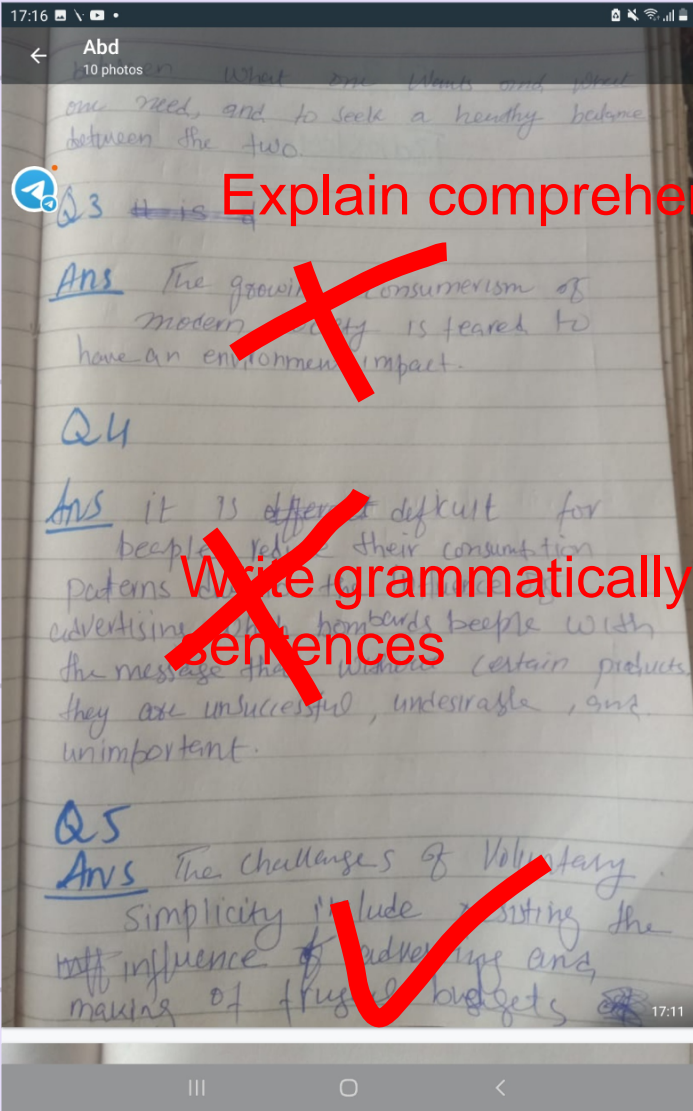 17:16
Abd
10 photos
between what one wants and what
one need, and to seek a healthy balance
between the two.
Q3 it is
Explain comprehen
Ans The growing consumerism of
modern is feared to
have an environment impact.
Q4
Ans it is defkult for
beaple their consumption
paterns
Write grammatically
advertising which bombards beeple with
sentences
the message that without certain products
they are unsuccessful, undesirable, and
unimportant.
Q5
Ans The challenges of Voluntary
Simplicity include resisting the
influence of advertising and
making of frugal budgets
17:11